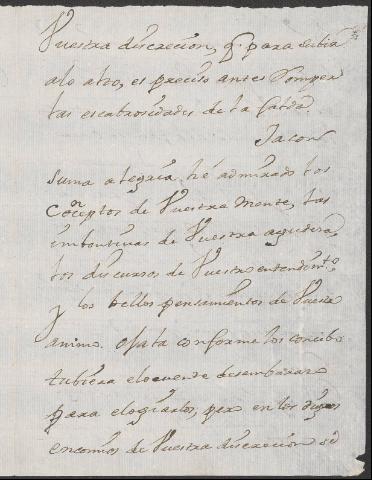 Vuestra discrecion, q. para subir
a lo alto, es preciso antes romper
las escabrosidades de la falda.
Jacob
suma alegria, hé admirado los
Coñceptos de Vuestra mente, las
imbentivas de Vuestra agudeza,
los discursos de Vuestro entendimto,
y los bellos pensamientos de Vuestro
animo. Ojala conforme los concibo
tubiera eloquente desembarazo
para elogiarlos, pero en los dignos
encomios de Vuestra discrecion se